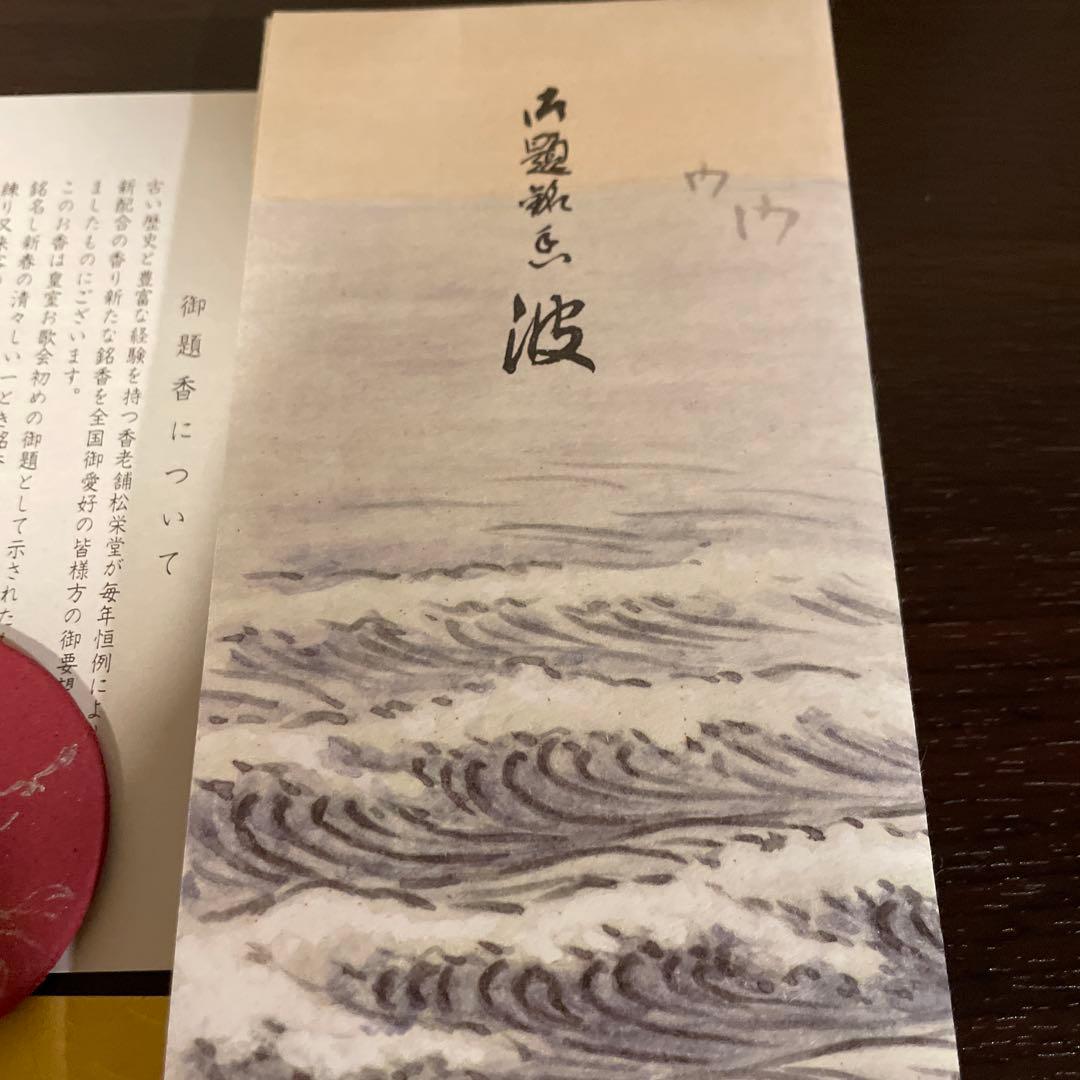 御題銘香
波
御題香について
古い歴史と豊富な経験を持つ香老舗松栄堂が毎年恒例により
新配合の香り新たな銘香を全国御愛好の皆様方の御要望
ましたものにございます。
このお香は皇室お歌会初めの御題として示された
銘名し新春の清々しい一とき銘香
練り又